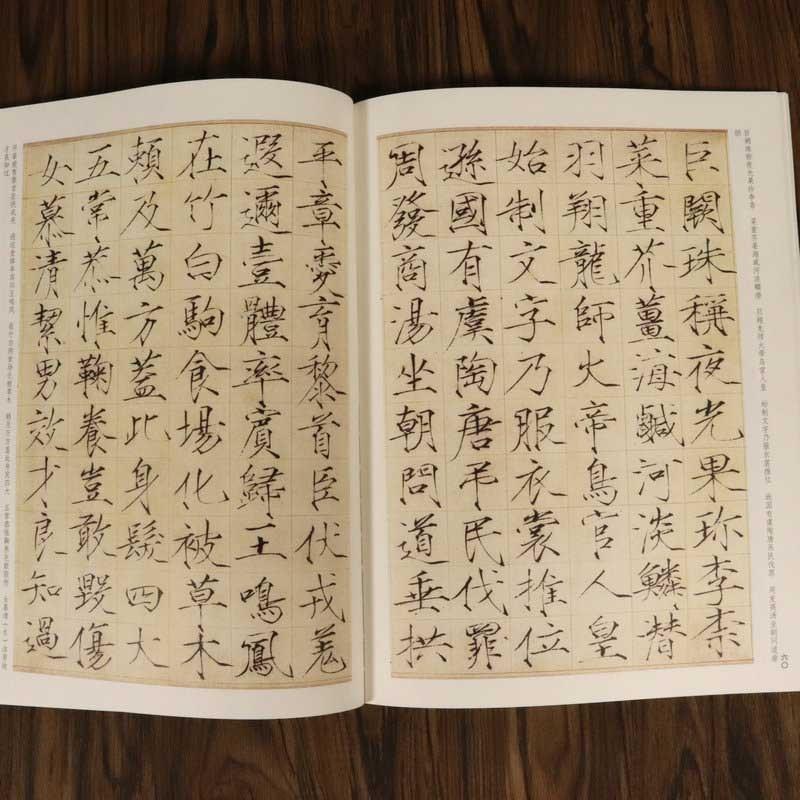 巨闕珠稱夜光果珍李柰
菜重芥薑海鹹河淡鱗潛
羽翔龍師火帝鳥官人皇
始制文字乃服衣裳推位
遜國有虞陶唐弔民伐罪
周發商湯坐朝問道垂拱
六〇
平章愛育黎首臣伏戎羌
遐邇壹體率賓歸王鳴鳳
在竹白駒食場化被草木
賴及萬方蓋此身髮四大
五常恭惟鞠養豈敢毀傷
女慕清絜男效才良知過